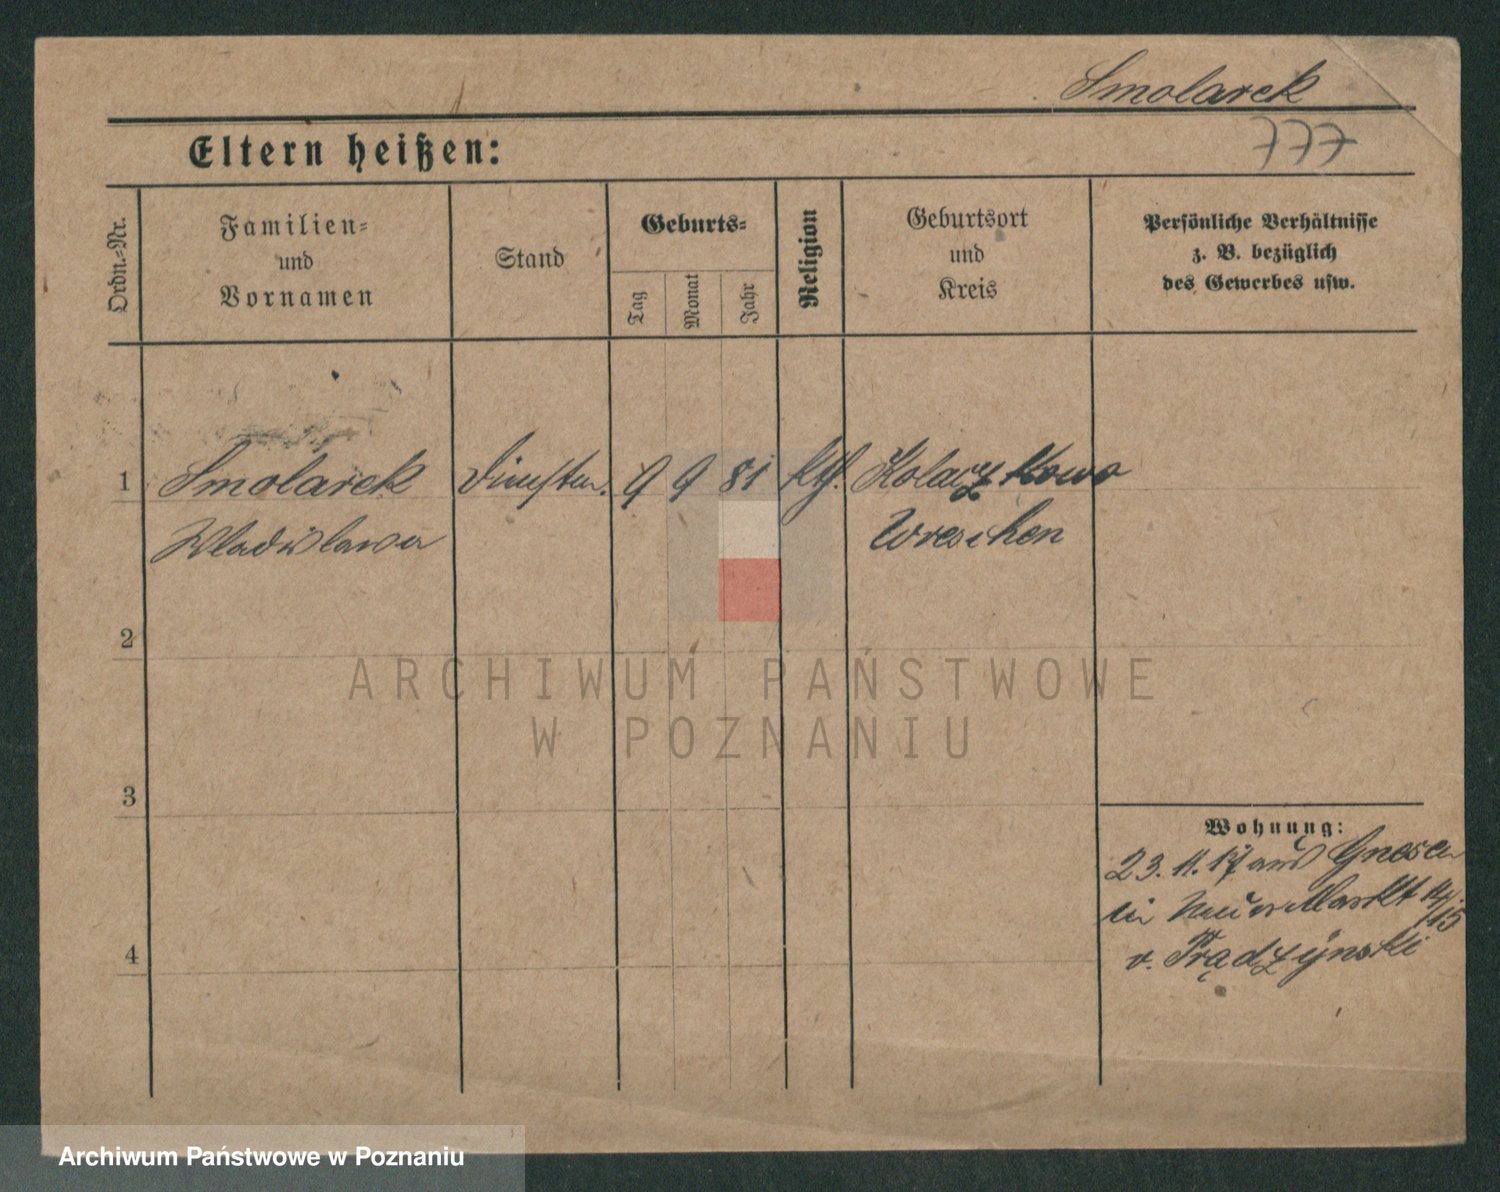 Smolarek
777
Eltern heißen:
Ordn.=Nr.
Familien=
und
Vornamen
Stand
Geburts=
Tag
Monat
Jahr
Religion
Geburtsort
und
Kreis
Persönliche Verhältnisse
z. B. bezüglich
des Gewerbes usw.
1
Smolarek
9
9
81
kth.
Kolaczkowo
Wladislawa
Wreschen
2
ARCHIWUM PAŃSTWOWE
W POZNANIU
3
Wohnung:
23. 11. 17 aus Gnesen
in Neuer Markt 14/15
v. Prądzÿnski
4
Archiwum Państwowe w Poznaniu